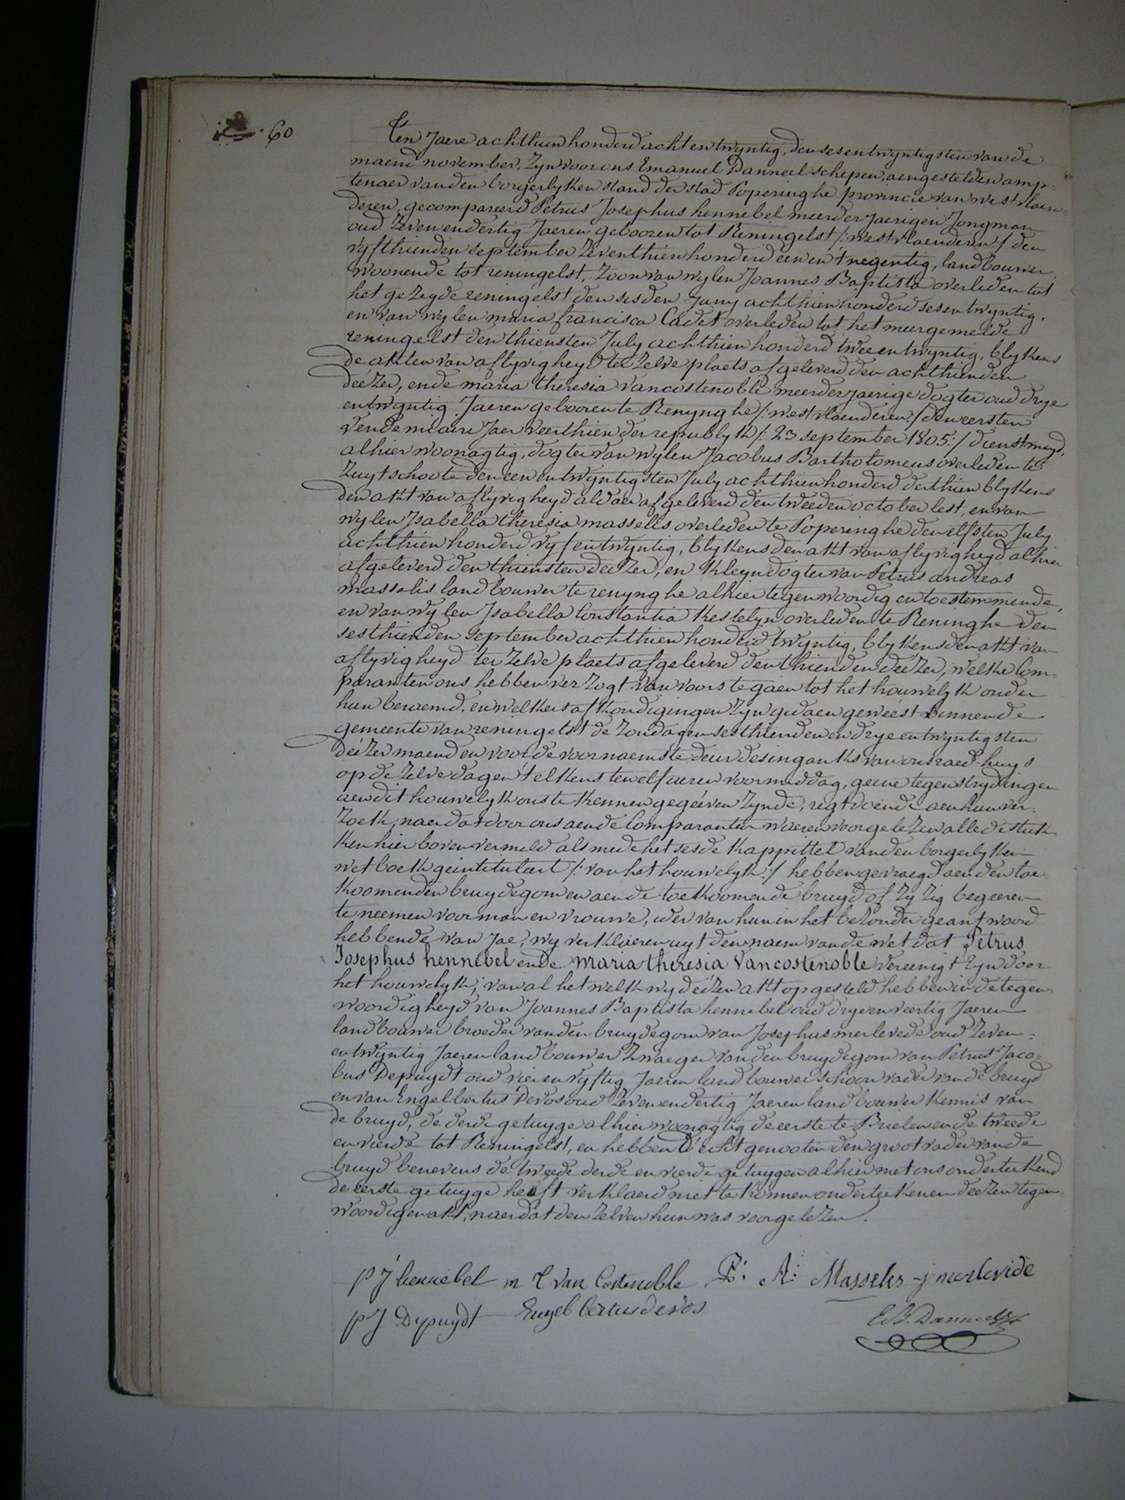 60
Ten Jaere achthien honderd acht en twyntig, den sesentwyntigsten van de
maend november, Zyn voor ons Emanuel Danneel schepen, aengestelden amp-
tenaer van den borgerlyken stand der stad Poperinghe provincie van west vlaen-
deren, gecompareerd Petrus Josephus hennebel meerderjaerigen Jongman
oud Zeven endertig Jaeren gebooren tot Reningelst /: westvlaenderen :/ den
vyfthienden september Zeventhien honderd een en t negentig, landbouwer
woonende tot reningelst, Zoon van wylen Joannes Baptista overleden tot
het gezegde reningelst den sesden Juny achthien honderd sesentwyntig,
en van wylen maria francisca Cadet overleden tot het meergemelde
reningelst den thiensten July achthien honderd twee entwyntig, blykens
de akten van aflyvigheyd ter Zelve plaets afgeleverd den achthienden
deézer, ende maria theresia vancostenoble meerderjaerige dogter oud drye
entwyntig Jaeren gebooren te Renynghe /: west vlaenderen :/ den eersten
vendemiaire Jaer veerthien der republyk /: 23 september 1805 :/ dienstmeyd,
alhier woonagtig, dogter van wylen Jacobus Bartholomeus overleden te
Zuytschoote den een entwyntigsten July achthien honderd derthien blykens
den akt van aflyvigheyd aldaer afgeleverd den tweeden october lest, en van
wylen Isabella theresia massells overleden te Poperinghe den elfsten July
achthien honderd vyf entwyntig, blykens den akt van aflyvigheyd alhier
afgeleverd den thiensten deézer, en kleyndogter van Petrus andreas
masselis landbouwer te renynghe alhier tegenwoordig en toestemmende,
en van wylen Isabella Constantia Kestelyn overleden te Reninghe den
sesthienden september achthien honderd twyntig, blykens den akt van
aflyvigheyd ter Zelve plaets afgeleverd den thienden deézer, welke Com-
paranten ons hebben verzogt van voors te gaen tot het houwelyk onder
hun beraemd, en welkers afkondigingen Zyn gedaen geweést binnen de
gemeente van reningelst de Zondagen sesthienden en drye entwyntigsten
deézer maend en voor de voornaemste deur des ingangs van ons raedhuys
op de Zelve dagen telkens ten elf ueren voormiddag, geene tegenstrydingen
aen dit houwelyk ons te kennen gegeéven Zynde, regt doende aen hun ver-
zoek, naer dat door ons aen de Comparanten waeren voorgelezen alle de stuk-
ken hier boven vermeld als mede het sesde kappittel van den borgerlyken
wetboek geintituleert /: van het houwelyk :/ hebben gevraegd aen den toe-
koomenden bruydegom en aen de toekoomende bruyd of Zy Zig begeeren
te neemen voor man en vrouwe, ider van hun in het bezonder geantwoord
hebbende van Jae, wy verklaeren uyt den naem van de wet dat Petrus
Josephus hennebel ende maria theresia Vancostenoble vereenigt Zyn door
het houwelyk; van al het welk wy deézen akt opgesteld hebben in de tegen-
woordigheyd van Joannes Baptista hennebel oud dryenveertig Jaeren
landbouwer broeder van den bruydegom van Josephus merlevede oud Zeven-
entwyntig Jaeren landbouwer Zwaeger van den bruydegom van Petrus Jaco-
bus Depuydt oud vier en vyftig Jaeren landbouwer schoonvader van de bruyd
en van Engelbertus Devos oud Zeven endertig Jaeren landbouwer kennis van
de bruyd, de derde getuyge alhier woonagtig de eerste te Bruelen en de tweede
en vierde tot Reningelst, en hebben d'echtgenooten den grootvader van de
bruyd benevens de tweede derde en vierde getuygen alhier met ons onderteekend
de eerste getuyge heéft verklaerd niet te konnen onderteekenen deézen tegen-
woordigen akt, naer dat den zelven hun was voorgelezen.
p J hennebel m t van Costenoble P: A: Masselis j merlevide
p J Depuydt Engelbertus devos
E. J. Danneel